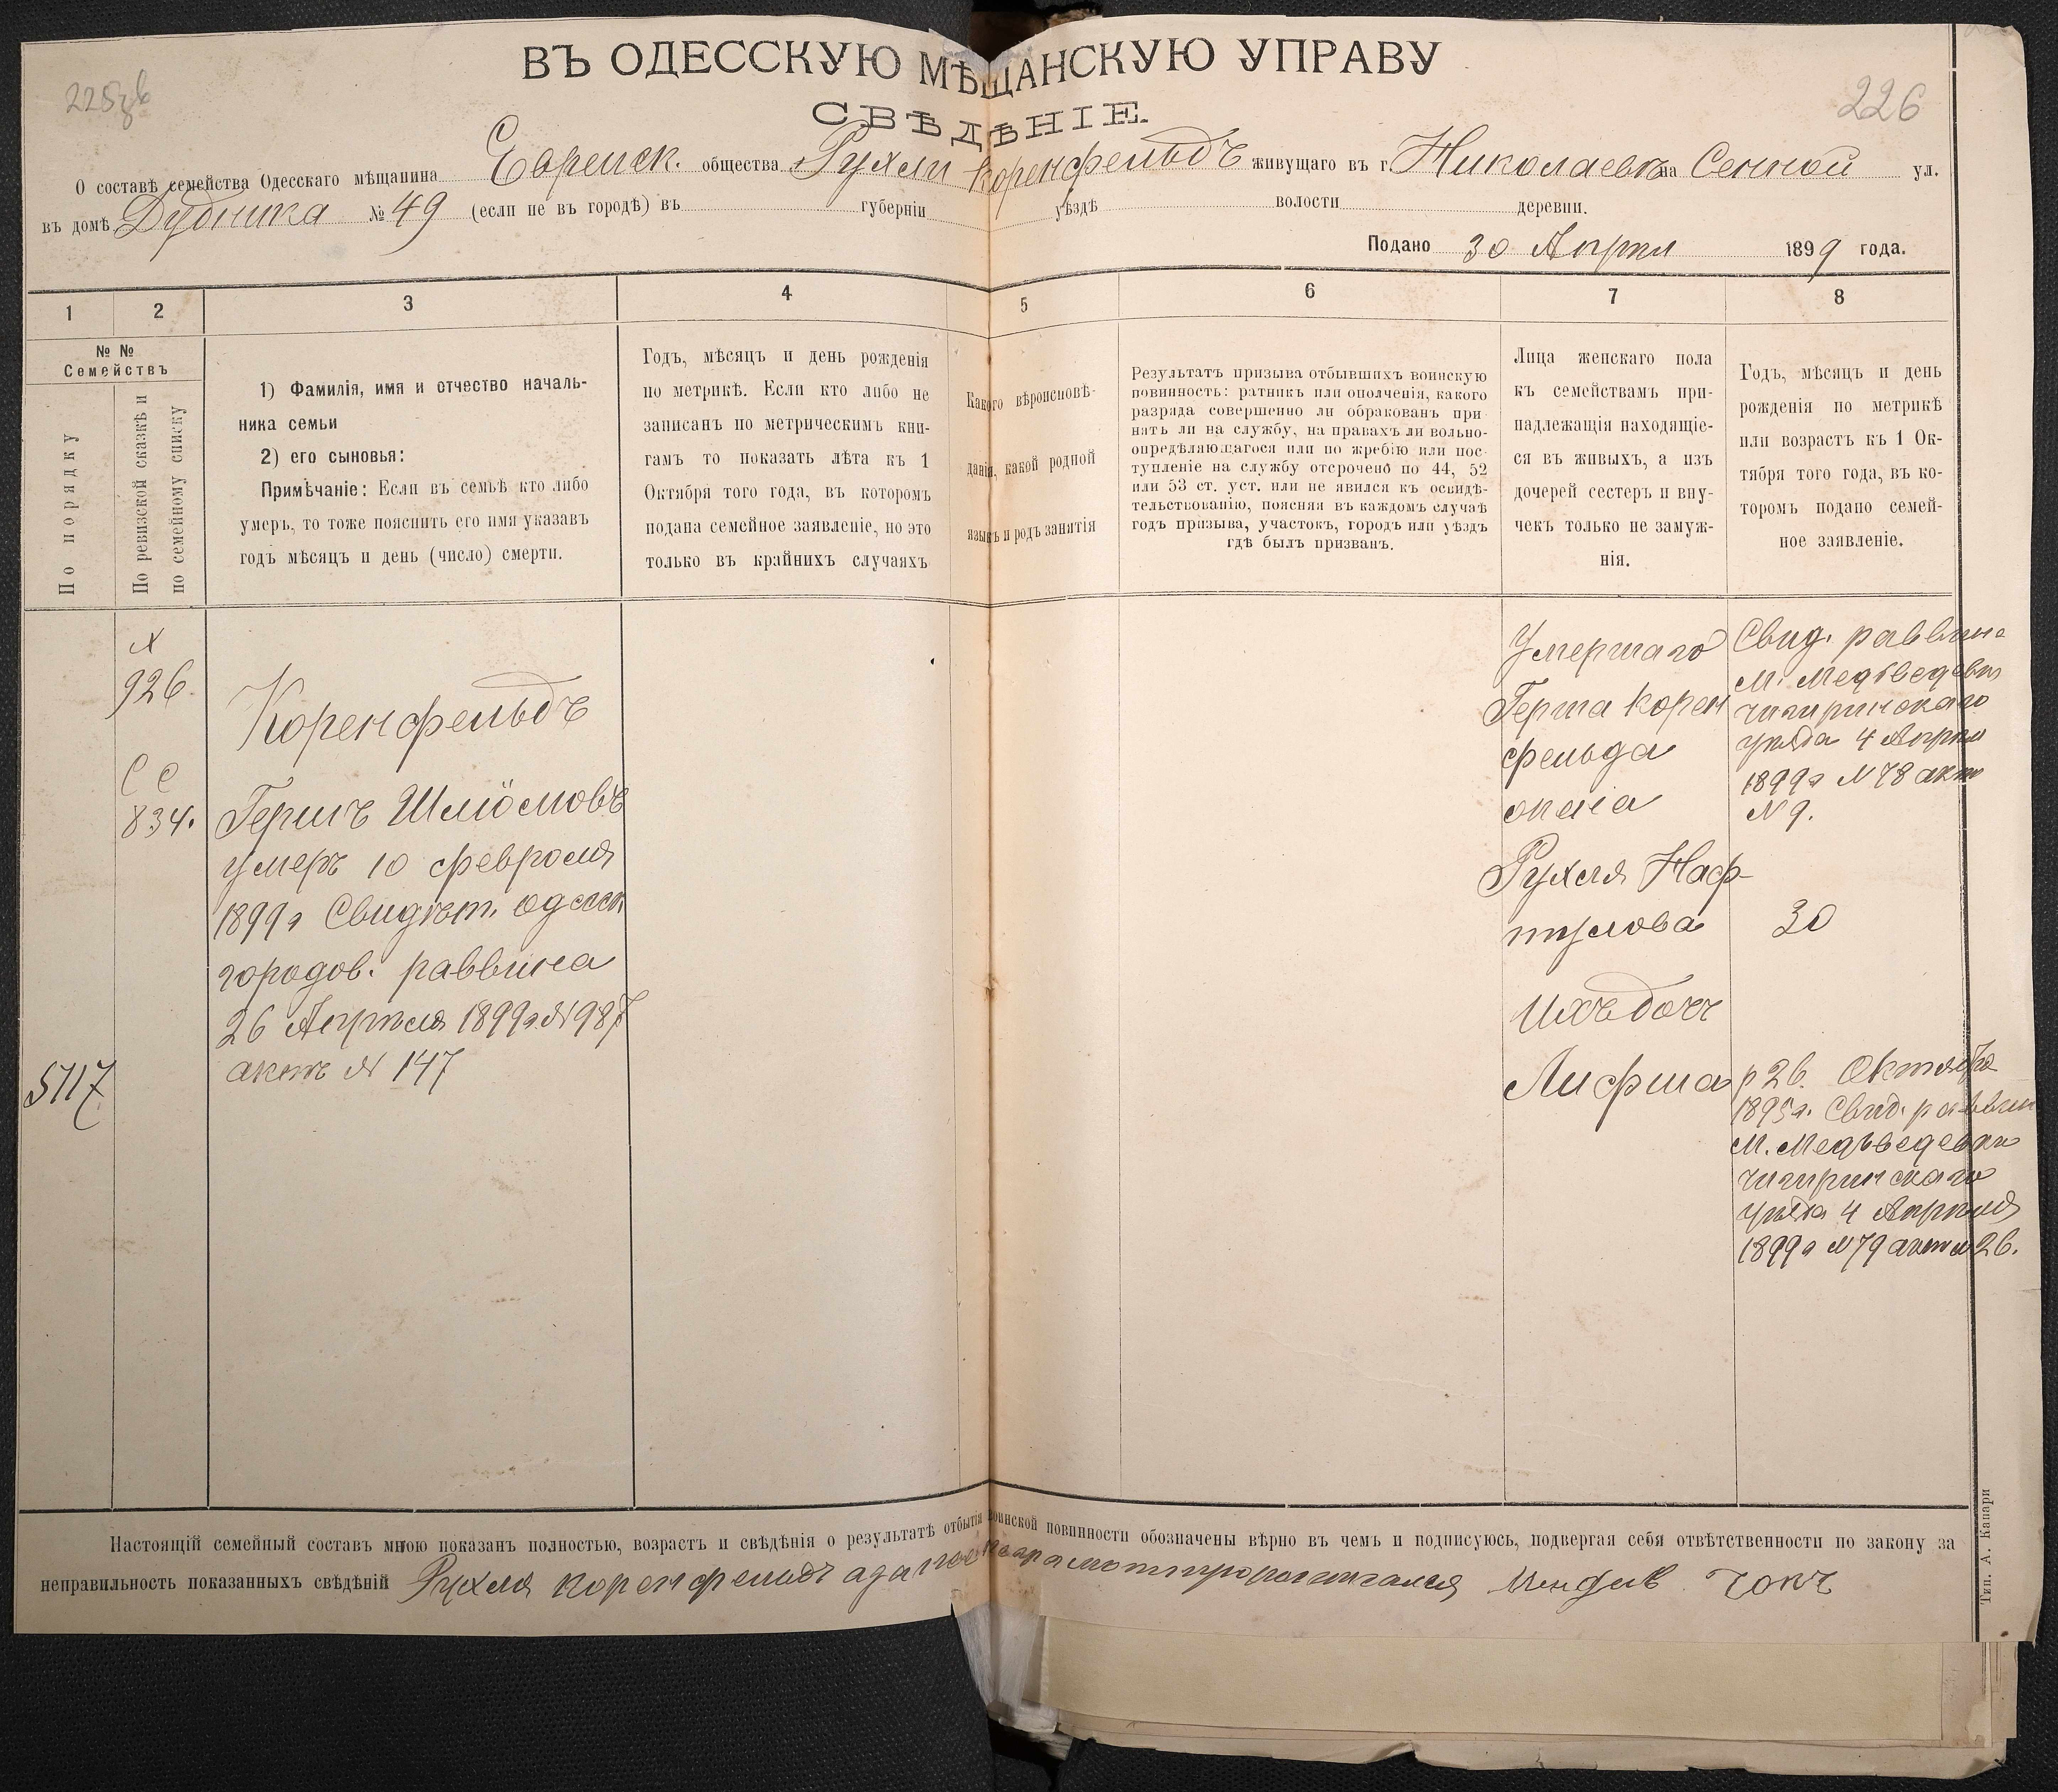 225зв
226
ВЪ ОДЕССКУЮ МѢЩАНСКУЮ УПРАВУ
СВѢДѢНІЕ.
О составѣ семейства Одесскаго мѣщанина Еврейск. общества Рухли Коренфельдъ живущаго въ г. Николаевѣ на Сенной ул.
въ домѣ Дубника № 49 (если не въ городѣ) въ губерніи уѣздѣ волости деревни.
Подано 30 Апрѣл 1899 года.
1 2 3 4 5 6 7 8
№ №
Семействъ
По порядку
По ревизской сказкѣ и
по семейному списку
1) Фамилія, имя и отчество началь-
ника семьи
2) его сыновья:
Примѣчаніе: Если въ семьѣ кто либо
умеръ, то тоже пояснить его имя указавъ
годъ мѣсяцъ и день (число) смерти.
Годъ, мѣсяцъ и день рожденія
по метрикѣ. Если кто либо не
записанъ по метрическимъ кни-
гамъ то показать лѣта къ 1
Октября того года, въ которомъ
подана семейное заявленіе, но это
только въ крайнихъ случаяхъ
Какого вѣроисповѣ-
данія, какой родной
языкъ и родъ занятія
Результатъ призыва отбывшихъ воинскую
повинность: ратникъ или ополченія, какого
разряда совершенно ли обракованъ при-
нятъ ли на службу, на правахъ ли вольно-
опредѣляющагося или по жребію или пос-
тупленіе на службу отсрочено по 44, 52
или 53 ст. уст. или не явился къ освидѣ-
тельствованію, поясняя въ каждомъ случаѣ
годъ призыва, участокъ, городъ или уѣздъ
гдѣ былъ призванъ.
Лица женскаго пола
къ семействамъ при-
надлежащія находящіе-
ся въ живыхъ, а изъ
дочерей сестеръ и вну-
чекъ только не замуж-
нія.
Годъ, мѣсяцъ и день
рожденія по метрикѣ
или возрастъ къ 1 Ок-
тября того года, въ ко-
торомъ подано семей-
ное заявленіе.
5117
№
926.
СС
834.
Коренфельдъ
Гершъ Шлiомовъ
умеръ 10 февроля
1899 г Свидѣт. одесск
городов. раввина
26 Апрѣля 1899г. № 987
актъ № 147
Умершаго
Герша Корен
фельда
Рухля Наф-
тулова
Ихъ дочь
Лифша
Свид. раввина
М. Медведевки
чигиринскаго
уѣзда 4 Апрѣл
1899г № 78 акт
№ 9.
30
р 26. Октября
1895г. Свид. раввин
М. Медъведевки
чигиринскаго
уѣзда 4 Апрѣля
1899г № 79 акт № 26.
Настоящій семейный составъ мною показанъ полностью, возрастъ и свѣдѣнія о результатѣ отбытія воинской повинности обозначены вѣрно въ чемъ и подписуюсь, подвергая себя отвѣтственности по закону за
неправильность показанныхъ свѣдѣній Рухля Коренфельдъ
Тип. А. Капари